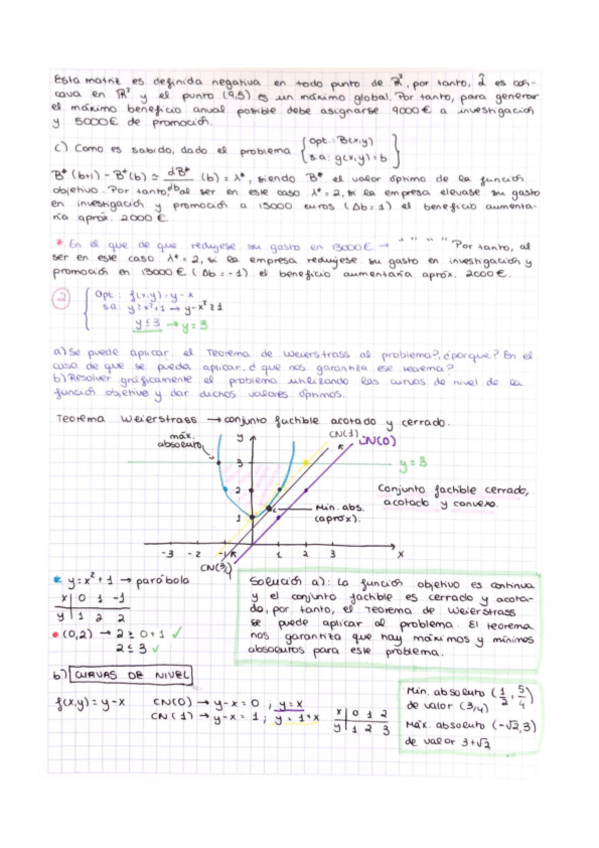 Esta matriz es definida negativa en todo punto de R², por tanto, L es cón-
cava en R² y el punto (9,5) es un máximo global. Por tanto, para generar
el máximo beneficio anual posible debe asignarse 9000€ a investigación
y 5000€ de promoción.
c) Como es sabido, dado el problema { Opt.: B(x,y)
s.a: g(x,y) = b }
B*(b+1) - B*(b) ≃ dB*/db (b) = λ*, siendo B* el valor óptimo de la función
objetivo. Por tanto, al ser en este caso λ* = 2, si la empresa elevase su gasto
en investigación y promoción a 15000 euros (Δb = 1) el beneficio aumenta-
ría apróx. 2000 €.
* En el que de que redujese su gasto en 13000€ → " " " " Por tanto, al
ser en este caso λ* = 2, si la empresa redujese su gasto en investigación y
promoción en 13000€ (Δb = -1) el beneficio aumentaría apróx. 2000€.
2 { Opt.: f(x,y) = y-x
s.a: y ≥ x²+1 → y-x² ≥ 1
y ≤ 3 → y = 3
a) Se puede aplicar el Teorema de Weierstrass al problema?, ¿porque? En el
caso de que se pueda aplicar, ¿ que nos garantiza ese teorema?
b) Resolver gráficamente el problema utilizando las curvas de nivel de la
función objetivo y dar dichos valores óptimos.
Teorema Weierstrass → conjunto factible acotado y cerrado.
máx.
absoluto
y
CN(1)
CN(0)
3
y = 3
2
1
Min. abs.
(apróx).
Conjunto factible cerrado,
acotado y convexo.
-3 -2 -1 1 2 3 x
* y = x² + 1 → parábola
x 0 1 -1
y 1 2 2
• (0,2) → 2 ≥ 0+1 ✓
2 ≤ 3 ✓
Solución a): La función objetivo es continua
y el conjunto factible es cerrado y acota-
do, por tanto, el Teorema de Weierstrass
se puede aplicar al problema. El teorema
nos garantiza que hay máximos y mínimos
absolutos para este problema.
b) CURVAS DE NIVEL
f(x,y) = y-x CN(0) → y-x = 0 ; y = x
CN(1) → y-x = 1 ; y = 1+x
x 0 1 2
y 1 2 3
Min. absoluto (1/2, 5/4)
de valor (3/4)
Máx. absoluto (-√2,3)
de valor 3+√2